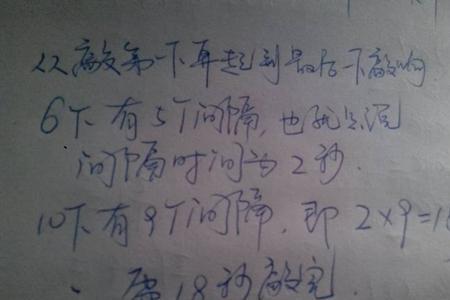 从敲第一下开起到最后一下敲响
6下有5个间隔,也就是说
间隔时间为2秒.
10下有9个间隔,即2×9=1
需18秒敲完.